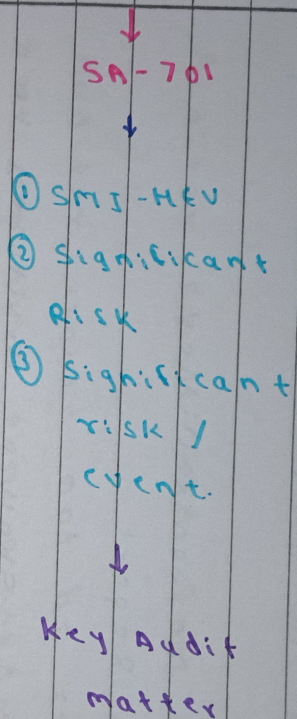 SA-701
① SMJ-HEU
② Significant
Risk
③ Significant
risk /
event.
Key Audit
matter